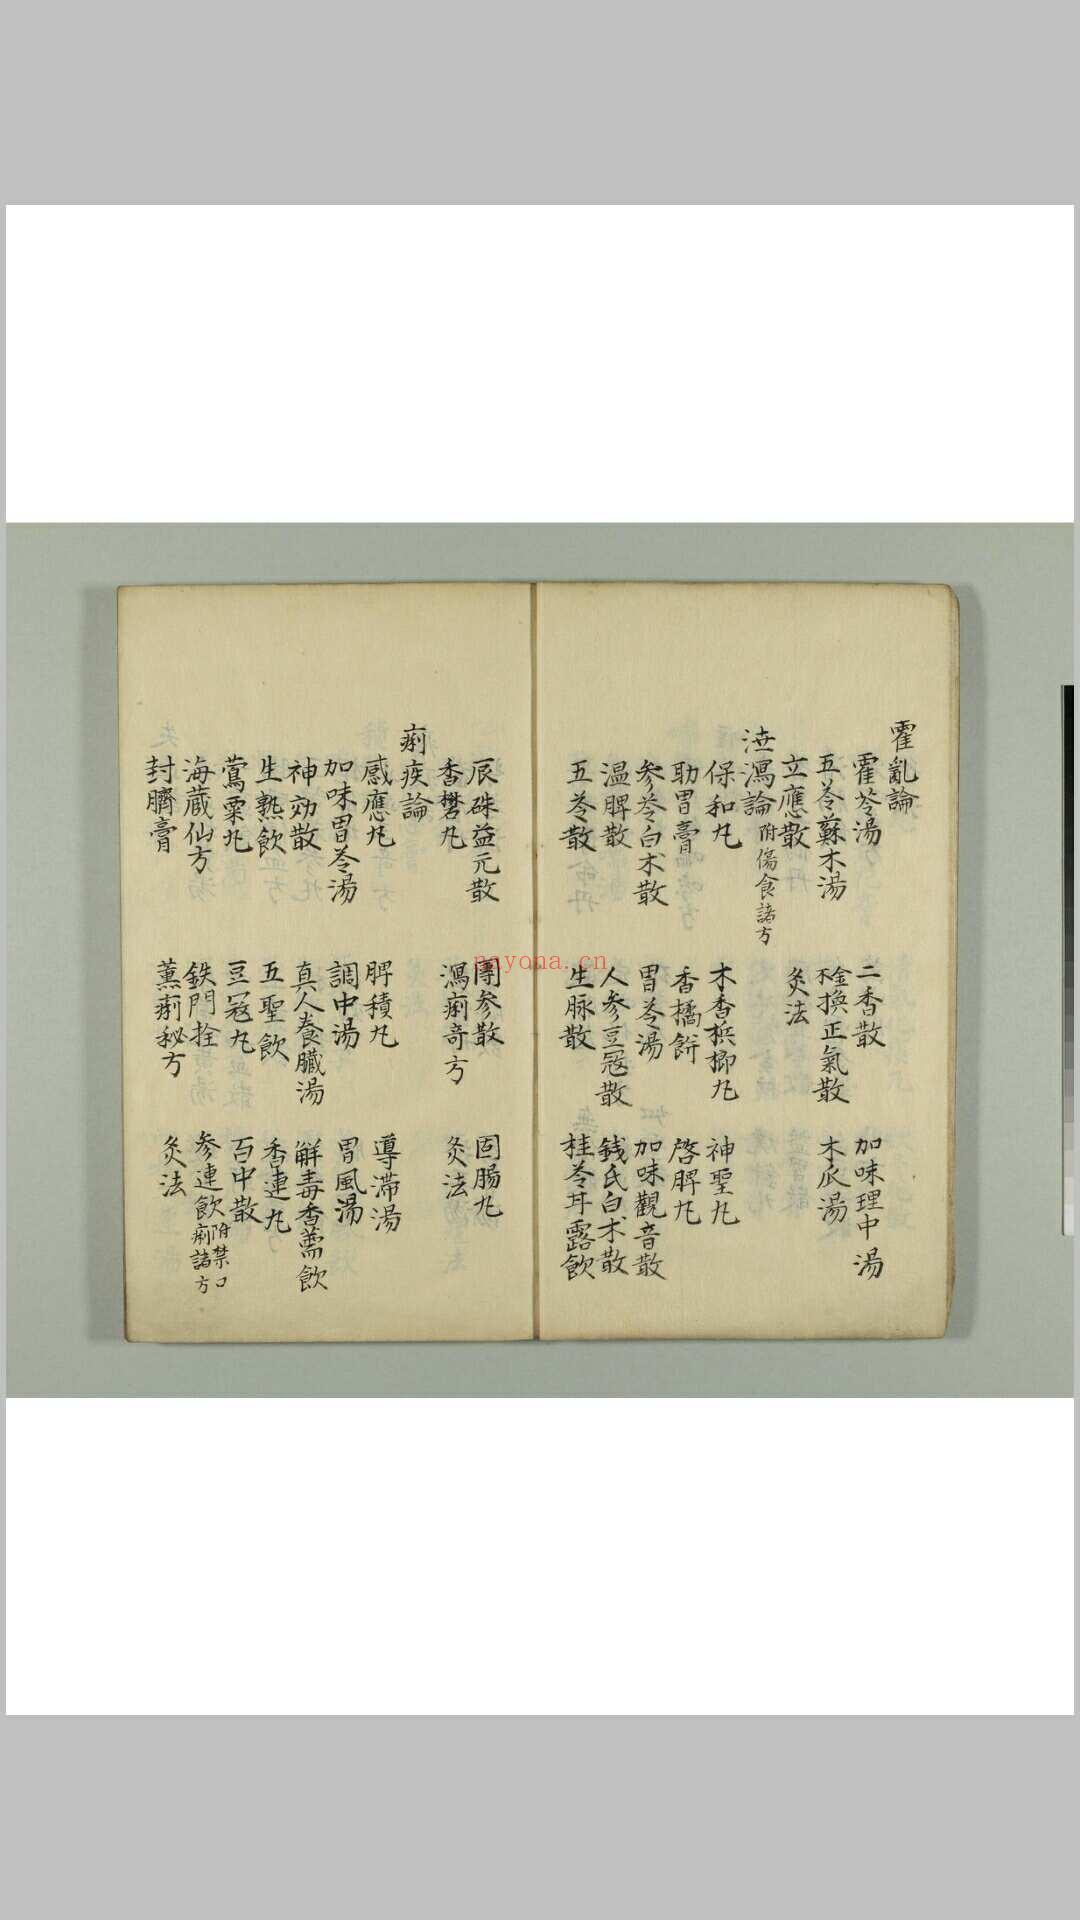 霍亂論
霍苓湯　二香散　加味理中湯
五苓蘇木湯　不金換正氣散　木瓜湯
立應散　灸法
泄瀉論 附傷食諸方
保和丸　木香梹榔丸　神聖丸
助胃膏　香橘餅　啓脾丸
参苓白术散　胃苓湯　加味觀音散
温脾散　人参豆蔻散　錢氏白术散
五苓散　生脉散　桂苓甘露飲
辰硃益元散　團参散　固腸丸
香礬丸　瀉痢奇方　灸法
痢疾論
感應丸　脾積丸　導滯湯
加味胃苓湯　調中湯　胃風湯
神効散　真人養臓湯　解毒香薷飲
生熟飲　五聖飲　香連丸
鶯粟丸　豆蔻丸　百中散
海蔵仙方　鉄門拴　参連飲 附禁口痢諸方
封臍膏　薫痢秘方　灸法
nayona.cn